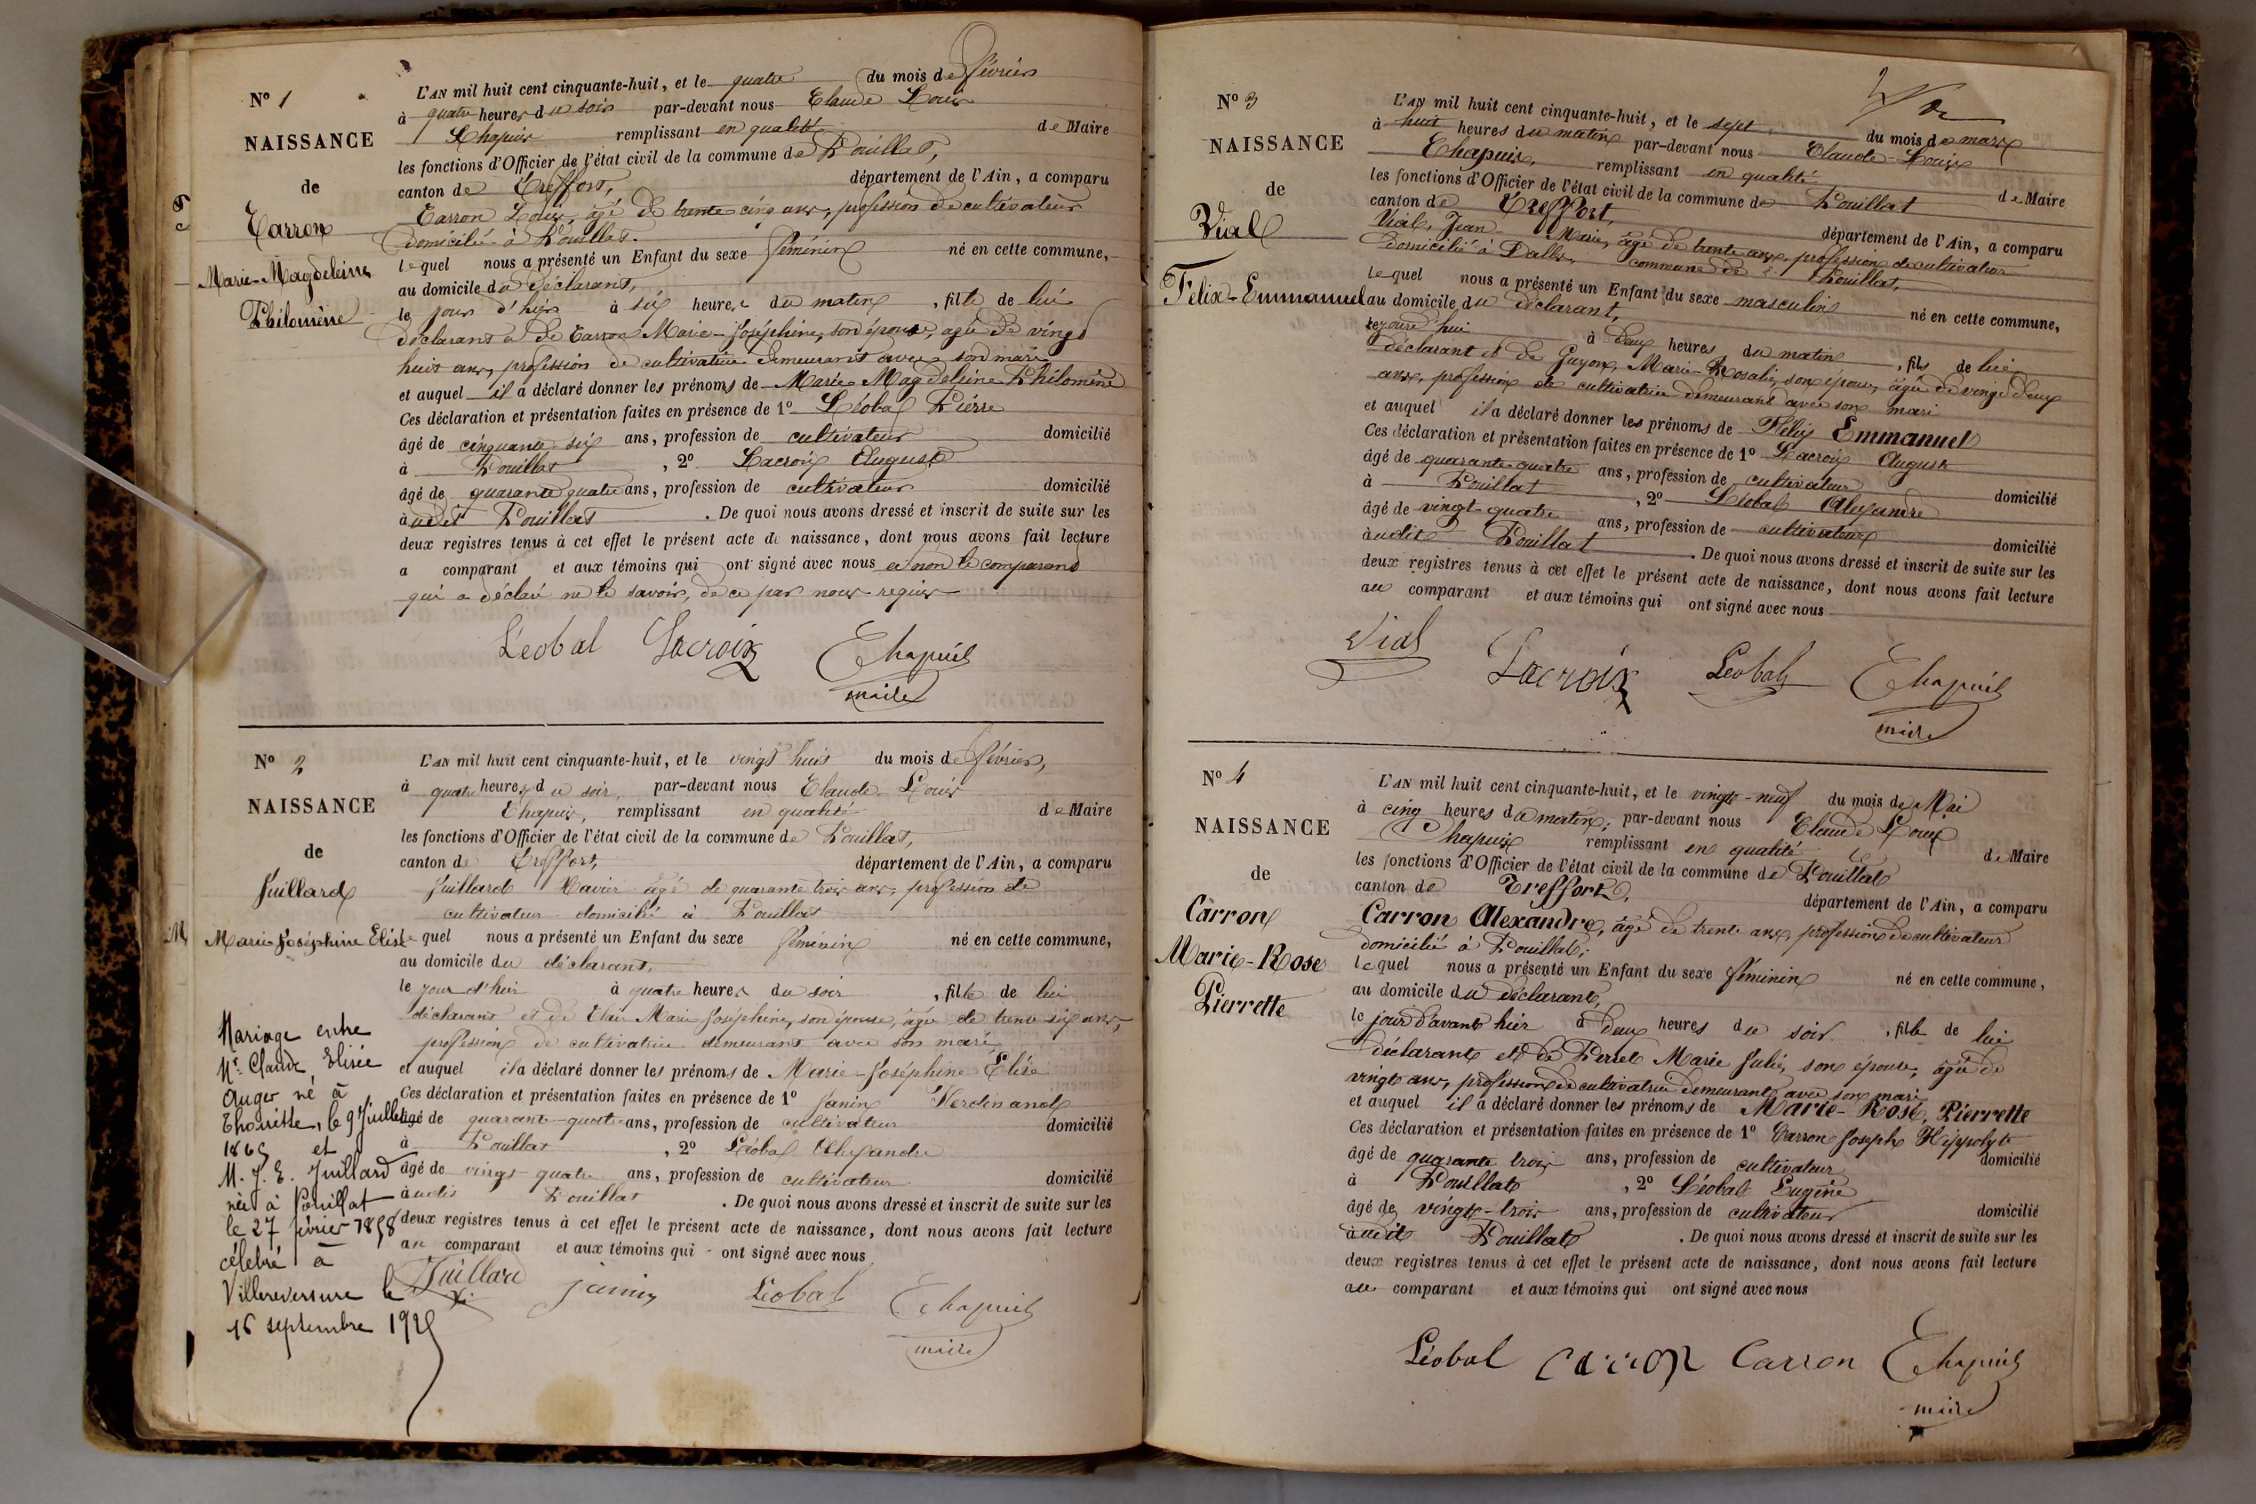 N° 1
NAISSANCE
de
Carron
Marie-Magdeleine
Philomène
L'AN mil huit cent cinquante-huit, et le quatre du mois de février
à quatre heures du soir par-devant nous Claude Louis
Chapuis remplissant en qualité de Maire
les fonctions d'Officier de l'état civil de la commune de Pouillat,
canton de Treffort, département de l'Ain, a comparu
Carron Louis, âgé de trente cinq ans, profession de cultivateur
domicilié à Pouillat.
lequel nous a présenté un Enfant du sexe féminin né en cette commune,
au domicile du déclarant,
le jour d'hier à six heures du matin, fille de lui
déclarant et de Carron Marie-Joséphine, son épouse, agée de vingt
huit ans, profession de cultivatrice demeurant avec son mari
et auquel il a déclaré donner les prénoms de Marie Magdeleine Philomène
Ces déclaration et présentation faites en présence de 1° Léobal Pierre
âgé de cinquante six ans, profession de cultivateur domicilié
à Pouillat, 2° Lacroix Auguste
âgé de quarante quatre ans, profession de cultivateur domicilié
audit Pouillat. De quoi nous avons dressé et inscrit de suite sur les
deux registres tenus à cet effet le présent acte de naissance, dont nous avons fait lecture
a comparant et aux témoins qui ont signé avec nous et non le comparant
qui a déclaré ne le savoir, de ce par nous requis
Léobal Lacroix Chapuis
maire
N° 2
NAISSANCE
de
Juillard
M
Marie Joséphine Elise
L'AN mil huit cent cinquante-huit, et le vingt huit du mois de février,
à quatre heures du soir, par-devant nous Claude-Louis
Chapuis, remplissant en qualité de Maire
les fonctions d'Officier de l'état civil de la commune de Pouillat,
canton de Treffort, département de l'Ain, a comparu
Juillard Xavier âgé de quarante trois ans, profession de
cultivateur domicilié à Pouillat
lequel nous a présenté un Enfant du sexe féminin né en cette commune,
au domicile du déclarant,
le jour d'hier à quatre heures du soir, fille de lui
déclarant et de Marie Joséphine, son épouse, agée de trente six ans,
profession de cultivatrice demeurant avec son mari
et auquel il a déclaré donner les prénoms de Marie-Joséphine Élise
Ces déclaration et présentation faites en présence de 1° Janin Ferdinand
âgé de quarante quatre ans, profession de cultivateur domicilié
à Pouillat, 2° Léobal Alexandre
âgé de vingt quatre ans, profession de cultivateur domicilié
audit Pouillat. De quoi nous avons dressé et inscrit de suite sur les
deux registres tenus à cet effet le présent acte de naissance, dont nous avons fait lecture
au comparant et aux témoins qui ont signé avec nous
Juillard janin Léobal Chapuis
maire
Mariage entre
Mr Claude Elisée
Auger né à
Thoirette, le 9 Juillet
1865 et
M. J. E. Juillard
née à Pouillat
le 27 février 1858
célébré à
Villereversure le
16 septembre 1925
N° 3
NAISSANCE
de
Vial
Félix-Emmanuel
2
L'AN mil huit cent cinquante-huit, et le sept du mois de mars
à huit heures du matin par-devant nous Claude-Louis
Chapuis, remplissant en qualité de Maire
les fonctions d'Officier de l'état civil de la commune de Pouillat
canton de Treffort, département de l'Ain, a comparu
Vial, Jean Marie, âgé de trente ans, profession de cultivateur
domicilié à Dalles, commune de Pouillat,
lequel nous a présenté un Enfant du sexe masculin né en cette commune,
au domicile du déclarant,
le jourd'hui à deux heures du matin, fils de lui
déclarant et de Guyon, Marie-Rosalie, son épouse, âgée de vingt deux
ans, profession de cultivatrice demeurant avec son mari
et auquel il a déclaré donner les prénoms de Félix Emmanuel
Ces déclaration et présentation faites en présence de 1° Lacroix Auguste
âgé de quarante-quatre ans, profession de cultivateur domicilié
à Pouillat, 2° Léobal Alexandre
âgé de vingt-quatre ans, profession de cultivateur domicilié
audit Pouillat. De quoi nous avons dressé et inscrit de suite sur les
deux registres tenus à cet effet le présent acte de naissance, dont nous avons fait lecture
au comparant et aux témoins qui ont signé avec nous
Vial Lacroix Léobal Chapuis
maire
N° 4
NAISSANCE
de
Carron
Marie-Rose
Pierrette
L'AN mil huit cent cinquante-huit, et le vingt-neuf du mois de Mai
à cinq heures du matin, par-devant nous Claude Louis
Chapuis remplissant en qualité de Maire
les fonctions d'Officier de l'état civil de la commune de Pouillat
canton de Treffort, département de l'Ain, a comparu
Carron Alexandre, âgé de trente ans, profession de cultivateur
domicilié à Pouillat;
lequel nous a présenté un Enfant du sexe féminin né en cette commune,
au domicile du déclarant,
le jour d'avant hier à deux heures du soir, fille de lui
déclarant et de Perret Marie Julie, son épouse, âgée de
vingt ans, profession de cultivatrice demeurant avec son mari
et auquel il a déclaré donner les prénoms de Marie-Rose, Pierrette
Ces déclaration et présentation faites en présence de 1° Carron Joseph Hippolyte
âgé de quarante trois ans, profession de cultivateur domicilié
à Pouillat, 2° Léobal Eugène
âgé de vingt-trois ans, profession de cultivateur domicilié
audit Pouillat. De quoi nous avons dressé et inscrit de suite sur les
deux registres tenus à cet effet le présent acte de naissance, dont nous avons fait lecture
au comparant et aux témoins qui ont signé avec nous
Léobal carron Carron Chapuis
maire